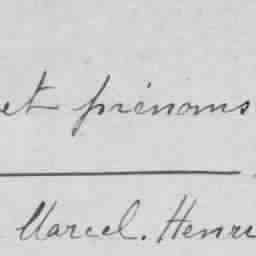 et prénoms
Marcel. Henri